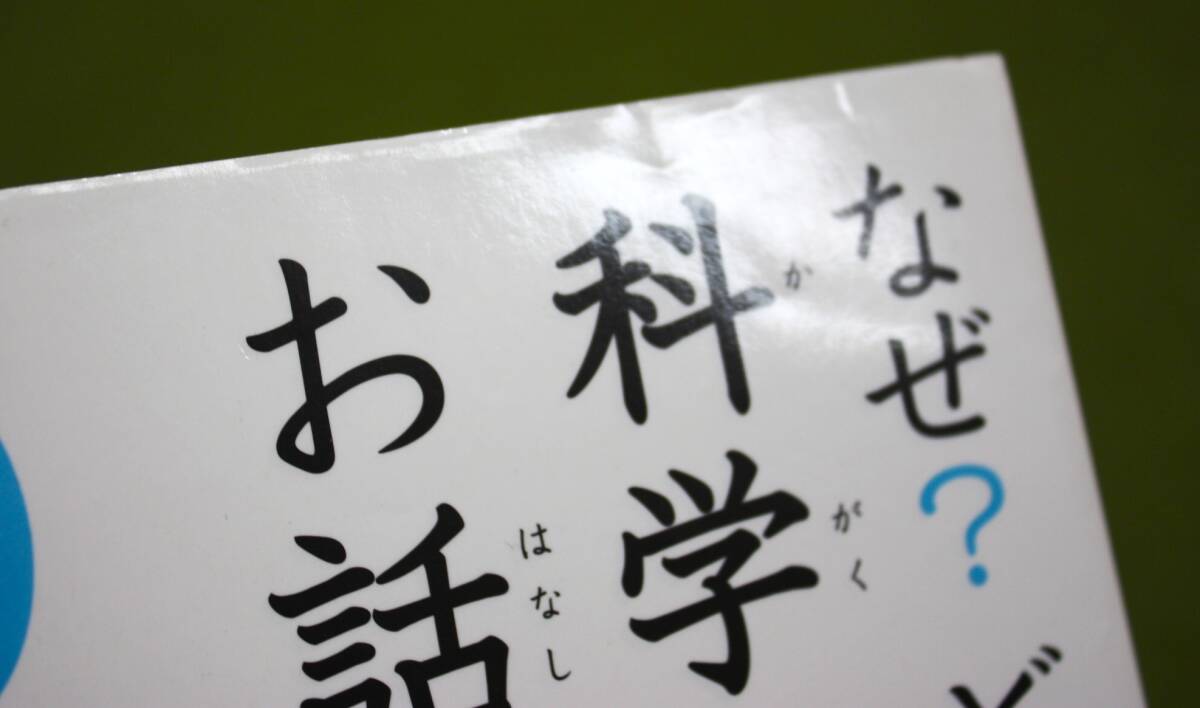 なぜ？ど
かがく
科学
はなし
お話